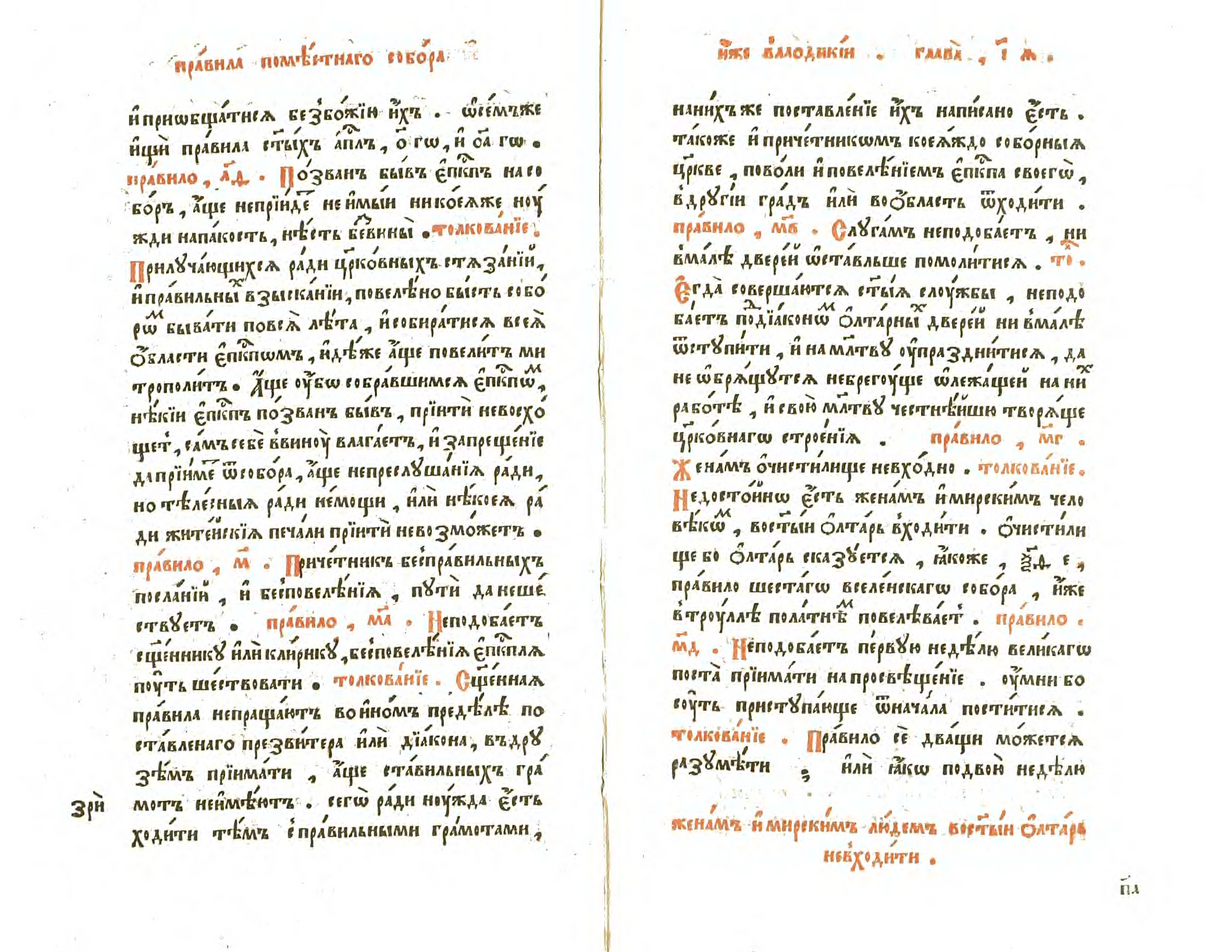 пра́вила помѣ́стнаго собо́ра
и҆приѡбща́тися безбо́жїи и҆́хъ . ѡ҆се́мъже
и҆щѝ пра́вила ст҃ы́хъ а҆п҃лъ , ѻ҃ гѡ , и҆ ѻ҃а гѡ .
пра́вило , л҃д . По́званъ бы́въ є҆п҃кпъ насо
бо́ръ , а҆́ще непрїи́де неи҆мы́й никоеѧ́же ноу́
жди напа́кость , нѣ́сть бе̑вины̀ . толкова́нїе .
Прилуча́ющихся ра́ди цр҃ко́вныхъ стѧза́нїй ,
и҆пра́вильны взыска́нїи , повелѣ́но бы́сть собо
рѡ быва́ти повсѧ̀ лѣ́та , и҆собира́тися всеѧ̀
ѻ҆́бласти є҆п҃кпѡмъ , и҆дѣ́же а҆́ще повели́тъ ми
трополи́тъ . А҆́ще оу҆́бѡ собра́вшимся є҆п҃кпѡм ,
нѣ́кїи є҆п҃кпъ по́званъ бы́въ , прїитѝ невосхо́
щет , са́мъ себѐ ввиноу̀ влага́етъ , и҆ запреще́нїе
да прїи́ме ѿсобо́ра , а҆́ще непреслуша́нїя ра́ди ,
но тѣле́сныя ра́ди не́мощи , и҆лѝ нѣ́коея ра́
ди жите́йскїя печа́ли прїитѝ невозмо́жетъ .
пра́вило , м҃ . Приче́тникъ беспра́вильныхъ
посла́нїй , и҆ бесповелѣ́нїя , путѝ да неше́
ствуетъ . пра́вило , м҃а . Неподоба́етъ
сщ҃е́ннику и҆лѝ кли́рику , бесповелѣ́нїя є҆п҃кпля
поу́ть ше́ствовати . толкова́нїе . Сщ҃е́нная
пра́вила непраща́ютъ во и҆но́мъ предѣ́лѣ по
ста́вленаго презви́тера и҆лѝ дїа́кона , въ дру
зѣ́мъ прїима́ти , а҆́ще ста́вильныхъ гра́
Зрѝ
мотъ неи҆мѣ́ютъ . сегѡ̀ ра́ди ноу́жда є҆́сть
ходи́ти тѣ́мъ с пра́вильными гра́мотами ,
и҆́же влаодикїи . глава̀ , і҃ ѧ .
на ни́хъ же поставле́нїе и҆́хъ напи́сано є҆́сть .
та́коже и҆ приче́тникѡмъ коеѧ́ждо собо́рныя
цр҃кве , пово́ли и҆ повелѣ́нїемъ є҆п҃кпа своегѡ̀ ,
в дру́гїи гра́дъ и҆лѝ во ѻ҆́бласть ѿходи́ти .
пра́вило , м҃в . Слуга́мъ неподоба́етъ , ни
вма́лѣ двере́й ѡ҆ста́вльше помоли́тися . то .
Є҆гда̀ соверша́ются ст҃ы́я слоу́жбы , неподо
ба́етъ подїа́конѡм ѻ҆лта́рны двере́й ни вма́лѣ
ѿступи́ти , и҆ на мл҃тву оу҆праздни́тися , да
не ѡ҆брѧ́щутся небрегоу́ще ѡ҆лежа́щей на них
рабо́тѣ , и҆ свою̀ мл҃тву честнѣ́йшю творѧ́ще
цр҃ко́внагѡ строе́нїя . пра́вило , м҃г .
Жена́мъ ѻ҆чисти́лище невхо́дно . толкова́нїе .
Недосто́йнѡ є҆́сть жена́мъ и҆ мирски́мъ чело
вѣ́кѡм , во ст҃ы́и ѻ҆лта́рь входи́ти . ѻ҆чисти́ли
ще бо ѻ҆лта́рь сказу́ется , ꙗ҆́коже , ѯ҃д . е ,
пра́вило шеста́гѡ вселе́нскагѡ собо́ра , и҆́же
в троу́ллѣ пола́тнѣм повелѣва́ет . пра́вило .
м҃д . Неподоба́етъ пе́рвую недѣ́лю вели́кагѡ
поста̀ прїима́ти на просвѣще́нїе . оу҆́мни бо
соу́ть приступа́юще ѿнача́ла пости́тися .
толкова́нїе . Пра́вило сѐ два́щи мо́жется
разумѣ́ти ; и҆лѝ ꙗ҆́кѡ подвою̀ недѣ́лю
жена́мъ и҆ мирски́мъ лю́демъ во ст҃ы́и ѻ҆лта́рь
невходи́ти .
п҃а